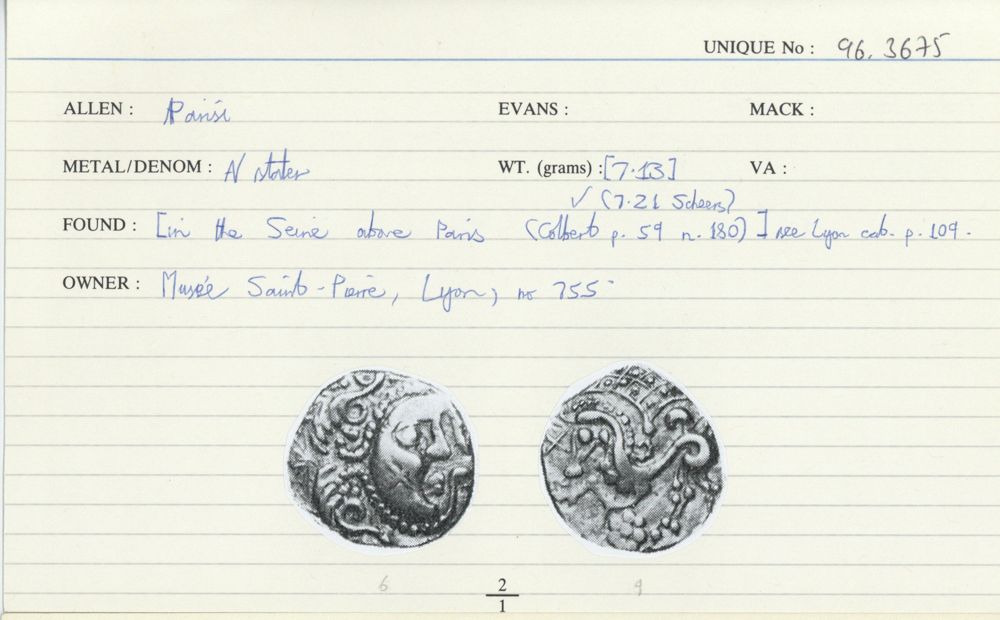 UNIQUE No : 96.3675
ALLEN : Parisii EVANS : MACK :
METAL/DENOM : N stater WT. (grams) : [7.13] VA :
✓ (7.21 Scheers)
FOUND : [in the Seine above Paris (Colbert p. 59 n. 180)] see Lyon cab. p. 109.
OWNER : Musée Saint-Pierre, Lyon, no 755
6 2 9
1